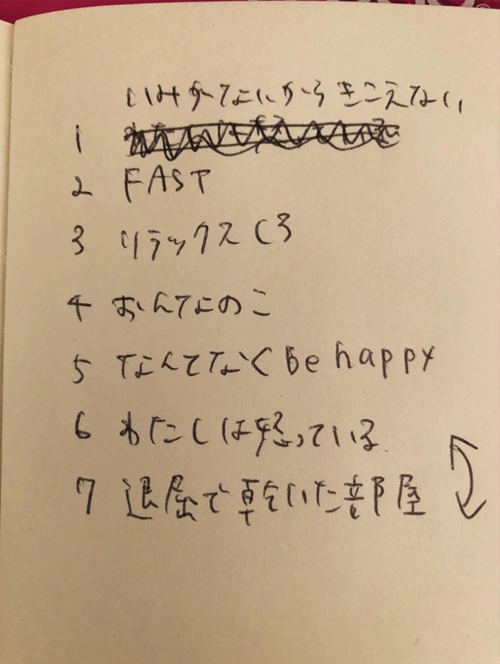 いみがないから きこえない
1
2 FAST
3 リラックスしろ
4 おんなのこ
5 なんとなく Be happy
6 わたしは怒っている
7 退屈で乾いた部屋